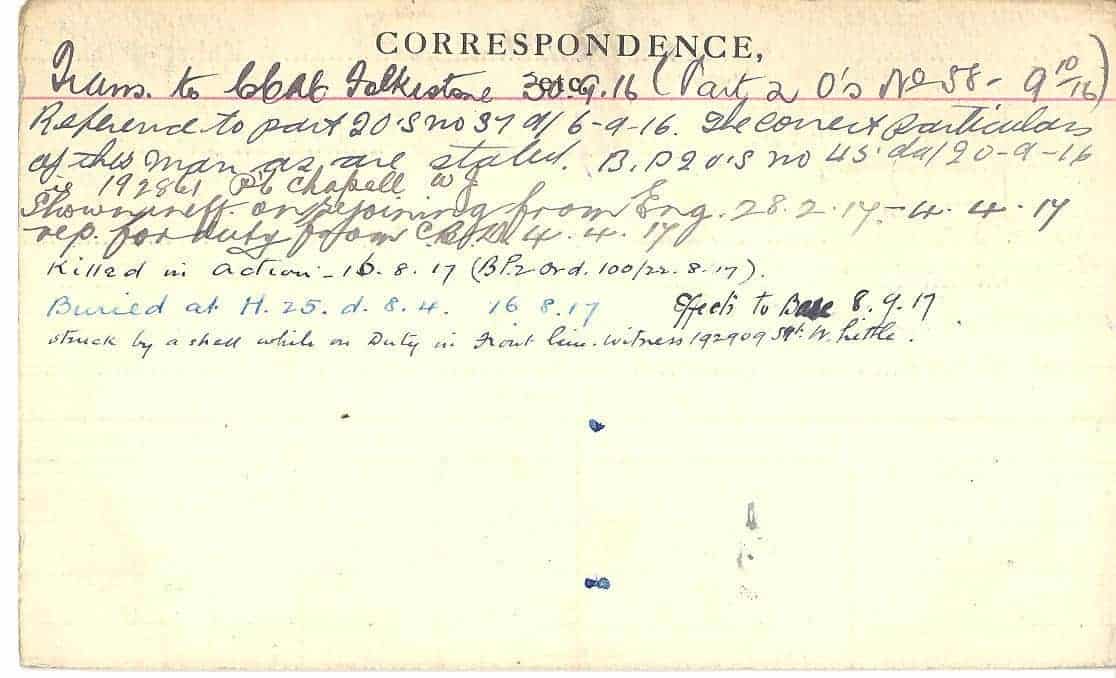 CORRESPONDENCE,
etc.
Trans. to CCAC Folkestone 30.9.16 (Part 2 O's No 58 - 9/10/16)
Reference to part 2 O'S no 37 d/ 6-9-16. The correct particulars
of this man as are stated. B.P2 O'S no 45 dd/20-9-16
is 192861 Pte Chapell W J
Shown ineff. on rejoining from Eng. 28.2.17 - 4.4.17
rep. for duty from 4.4.17
Killed in action - 16.8.17 (BP.2 Ord. 100/22.8.17).
Buried at H.25.d.8.4. 16 8.17 Effects to Base 8.9.17
struck by a shell while on Duty in Front line. Witness 192909 Sgt. W. Little.